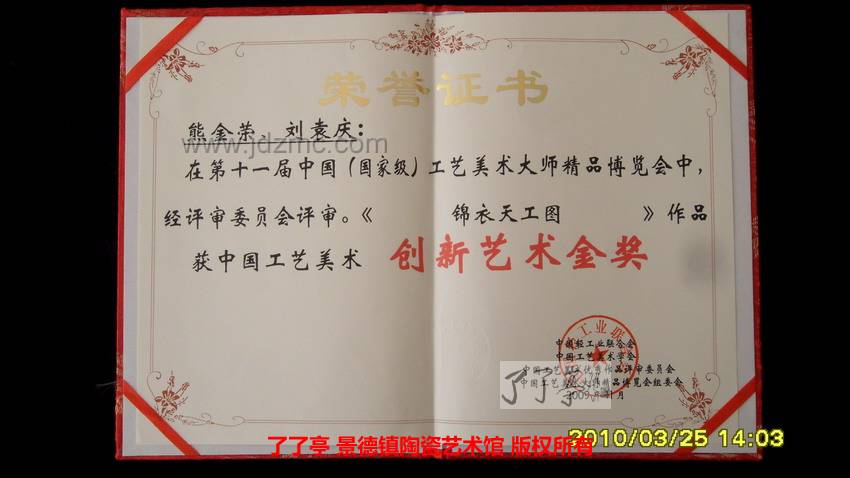 荣誉证书
熊金荣、刘袁庆：
www.jdzmc.com
在第十一届中国(国家级)工艺美术大师精品博览会中，
经评审委员会评审。《 锦衣天工图 》作品
获中国工艺美术 创新艺术金奖
工业联
中国轻工业联合会
中国工艺美术学会
中国工艺美术优秀作品评审委员会
中国工艺美术大师精品博览会组委会
2009年 月
了了亭
2010/03/25 14:03
了了亭 景德镇陶瓷艺术馆 版权所有